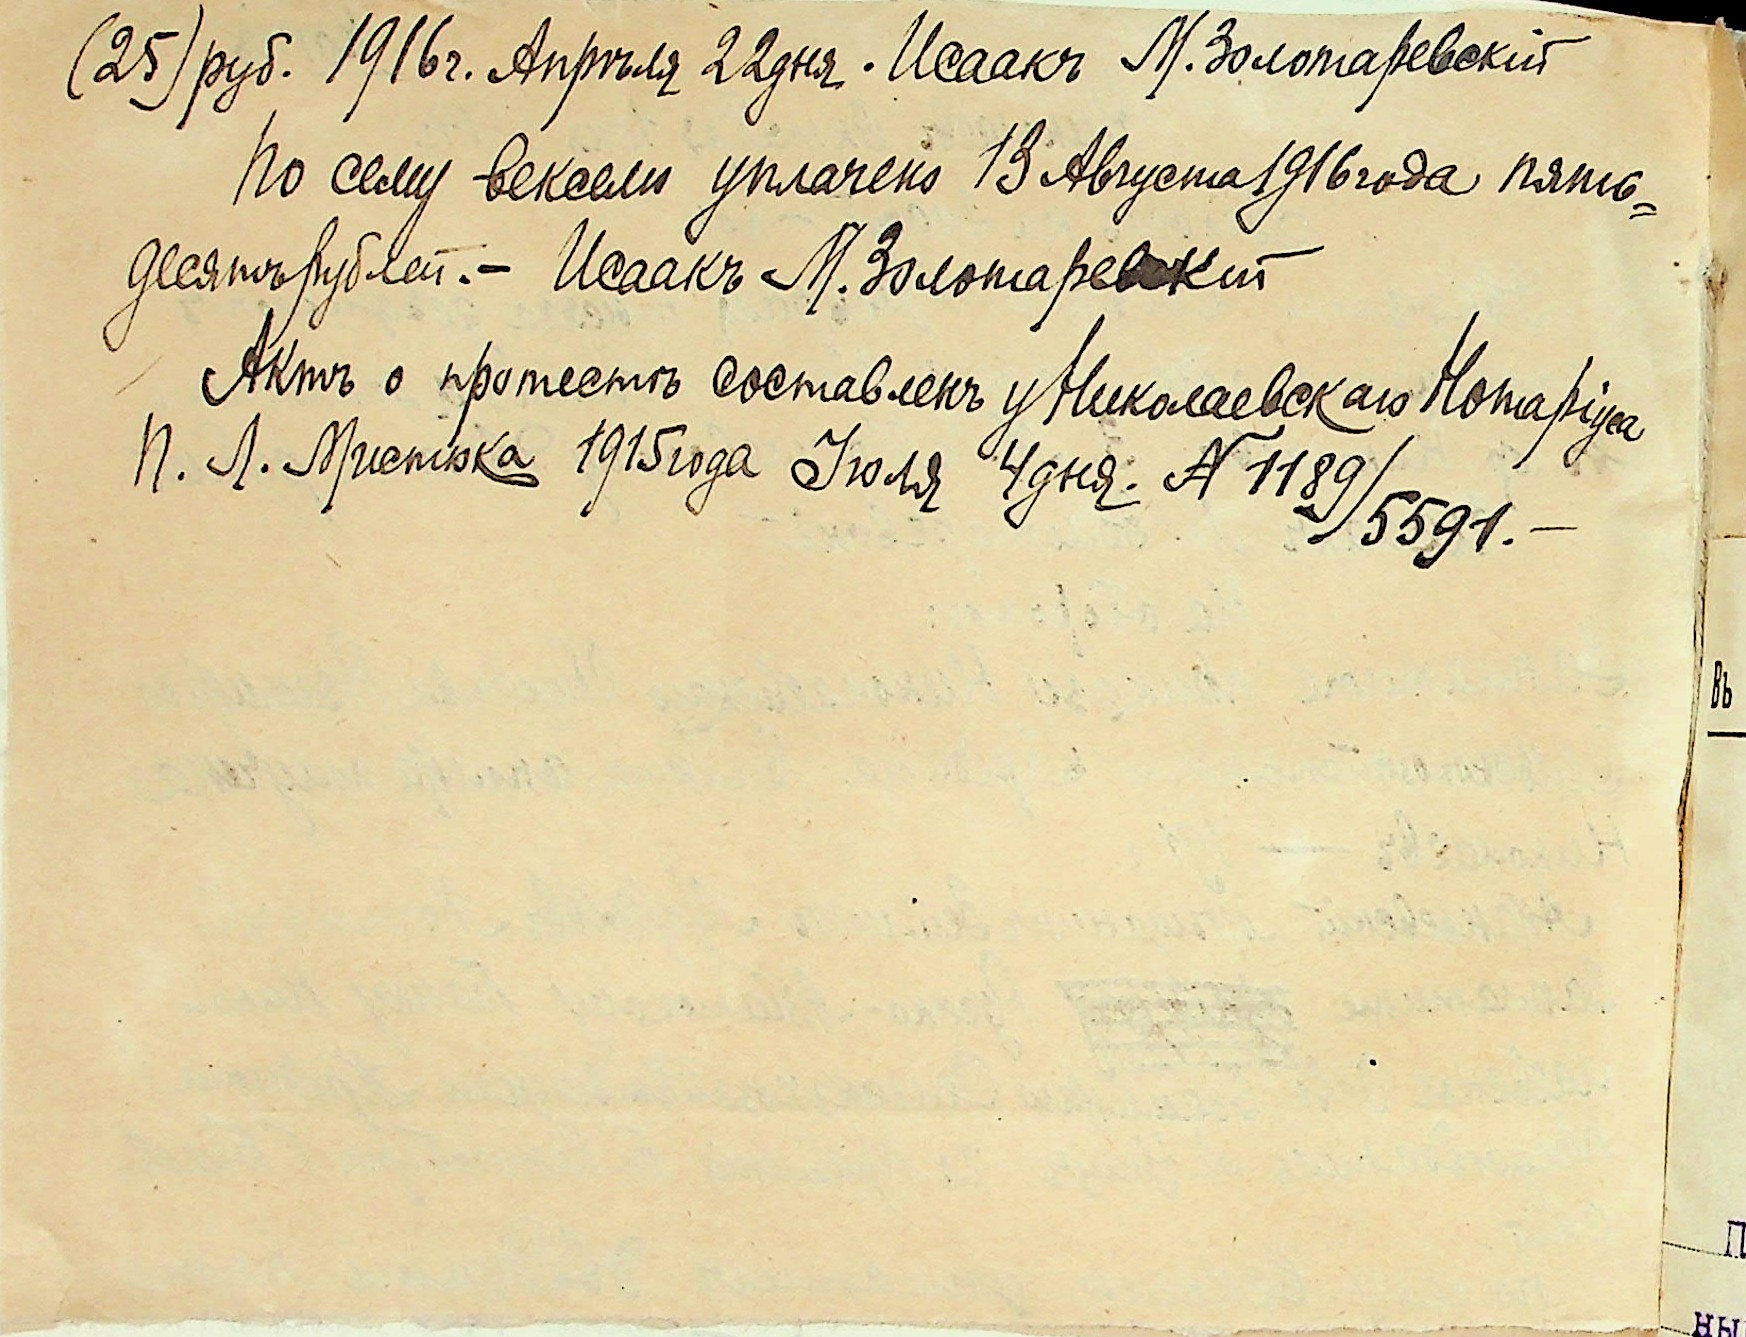 (25) руб. 1916 г. Апрѣля 22 дня. Исаакъ М. Золотаревскій
По сему векселю уплачено 13 Августа 1916 года пять=
десятъ рублей. – Исаакъ М. Золотаревскій
Актъ о протестѣ составленъ у Николаевскаго Нотаріуса
П. Л. 1915 года Іюля 4 дня. № 1189/5591. –
Въ